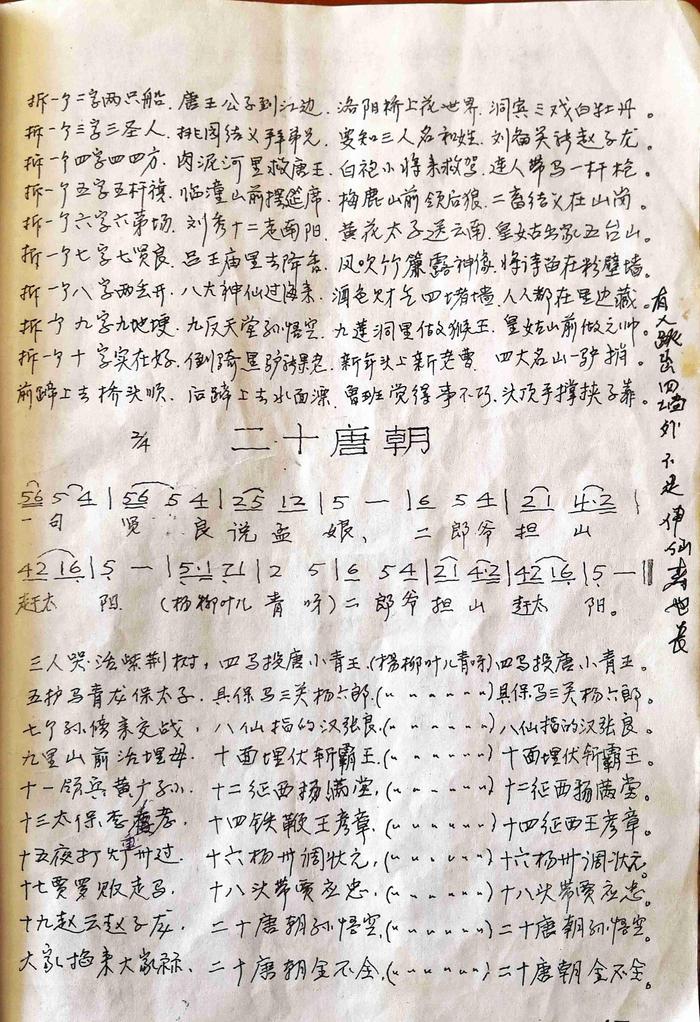 拆一个二字两只船.唐王公子到江边.洛阳桥上花世界.洞宾三戏白牡丹。
拆一个三字三圣人.桃园结义拜弟兄.要知三人名和姓.刘备关张赵子龙。
拆一个四字四四方.肉泥河里救唐王.白袍小将来救驾.连人带马一杆枪。
拆一个五字五杆旗.临潼山前摆筵席.梅鹿山前领后狼.二畜结义在山岗.
拆一个六字六荣场.刘秀十二走南阳.黄花太子送云南.皇姑出家五台山。
拆一个七字七贤良.吕王庙里去降香.风吹竹簾露神像.将诗留在粉壁墙。
拆一个八字两丢开.八大神仙过海来.酒色财气四堵墙.人人都在里边藏。
有人跳出四墙外不是神仙寿也长
拆个九字九地埂.九反天堂孙悟空.九莲洞里做猴王.皇姑山前做元帅。
拆一个十字实在好.倒骑黑驴张果老.新年头上新老曹.四大名山一驴捎。
前蹄上去桥头顺.后蹄上去水面漂.鲁班觉得事不巧.头顶手撑挟子暴。
2/4 二十唐朝
56 5 4 | 56 5 4 | 25 12 | 5 — | 6 5 4 | 21 4·2 |
一句 贤 良 说 孟 娘、二 郎 爷 担 山
42 16 | 5 — | 5·1 71 | 2 5 | 6 5 4 | 21 4·2 | 42 16 | 5 — ‖
赶太 阳.(杨柳叶儿 青 呀)二 郎 爷 担 山 赶太 阳。
三人哭活紫荆树,四马投唐小青王.(杨柳叶儿青呀)四马投唐小青王。
五护马青龙保太子.具保马三关杨六郎.(〃 〃 〃 〃 〃 〃)具保马三关杨六郎。
七个孙膑来交战,八仙指的汉张良.(〃 〃 〃 〃 〃 〃)八仙指的汉张良。
九里山前活埋母.十面埋伏斩霸王.(〃 〃 〃 〃 〃 〃)十面埋伏斩霸王。
十一领兵黄 子小.十二征西杨满堂.(〃 〃 〃 〃 〃 〃)十二征西杨满堂。
十三太保李 孝.十四铁鞭王彦章.(〃 〃 〃 〃 〃 〃)十四征西王彦章。
十五夜打 州过.十六杨州调状元.(〃 〃 〃 〃 〃 〃)十六杨州调状元。
十七贾罗败走马.十八头带贾应忠.(〃 〃 〃 〃 〃 〃)十八头带贾应忠。
十九赵云赵子龙,二十唐朝孙悟空.(〃 〃 〃 〃 〃 〃)二十唐朝孙悟空。
大家 来大家 .二十唐朝全不全.(〃 〃 〃 〃 〃 〃)二十唐朝全不全。